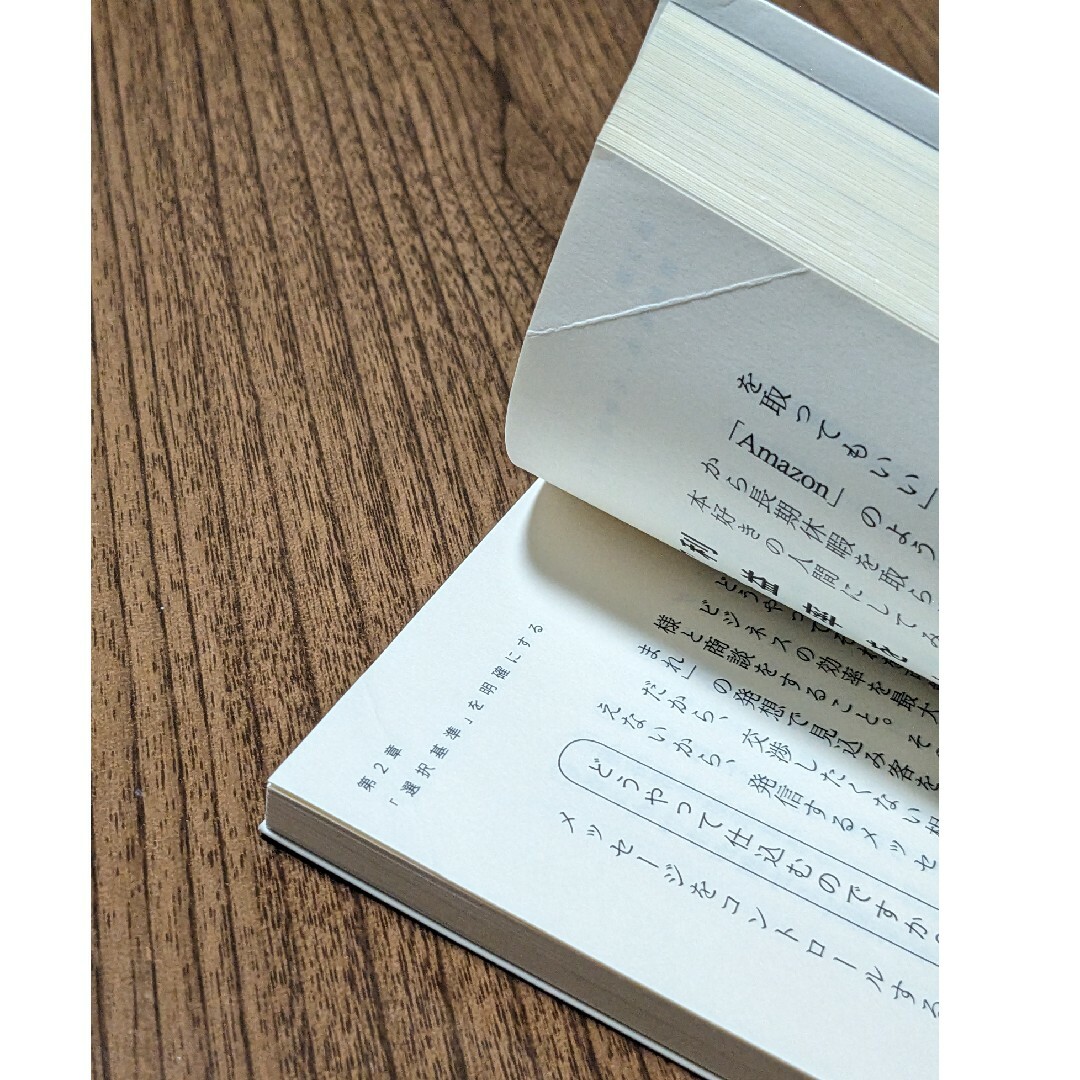 を取ってもいい」
「Amazon」のよう
から長期休暇を取ら、
本好きの人間にしてみ
ビジネスの効率を最大
様と商談をすること。そ
まれ」の発想で見込み客を
だから、交渉したくない相
えないから、発信するメッセ
どうやって仕込むのですか
メッセージをコントロールする
第2章
「選択基準」を明確にする